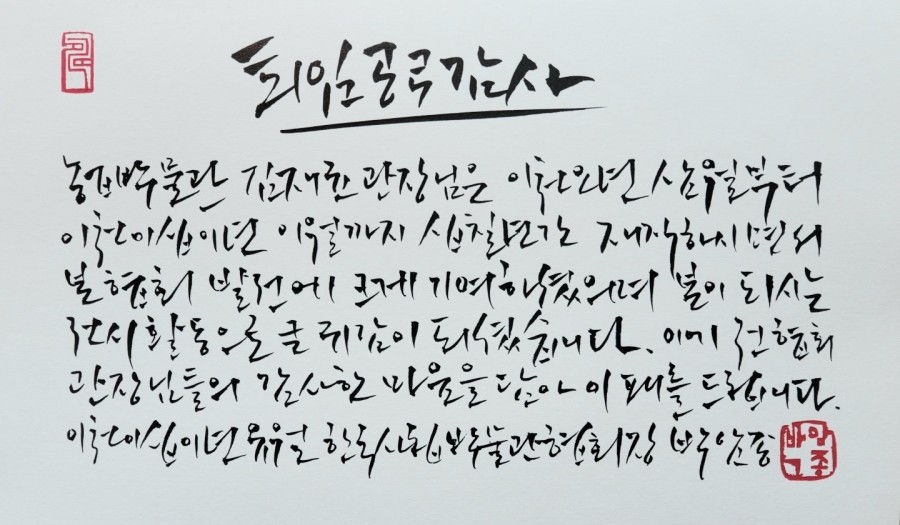 퇴임공로감사
농업박물관 김재균 관장님은 이천오년 삼월부터
이천이십이년 이월까지 십칠년간 재직하시면서
본 협회 발전에 크게 기여하셨으며 본이 되시는
전시활동으로 큰 귀감이 되셨습니다. 이에 전 협회
관장님들의 감사한 마음을 담아 이 패를 드립니다.
이천이십이년 유월 한국사립박물관협회장 박암종
박암종